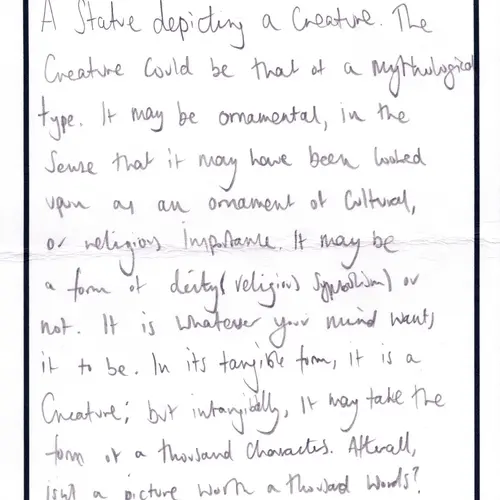 A Statue depicting a Creature. The
Creature could be that of a mythological
type. It may be ornamental, in the
sense that it may have been looked
upon as an ornament of cultural,
or religious importance. It may be
a form of deity (religious symbolism) or
not. It is whatever your mind wants
it to be. In its tangible form, it is a
Creature; but intangibally, it may take the
form of a thousand characters. Afterall,
isnt a picture worth a thousand words?